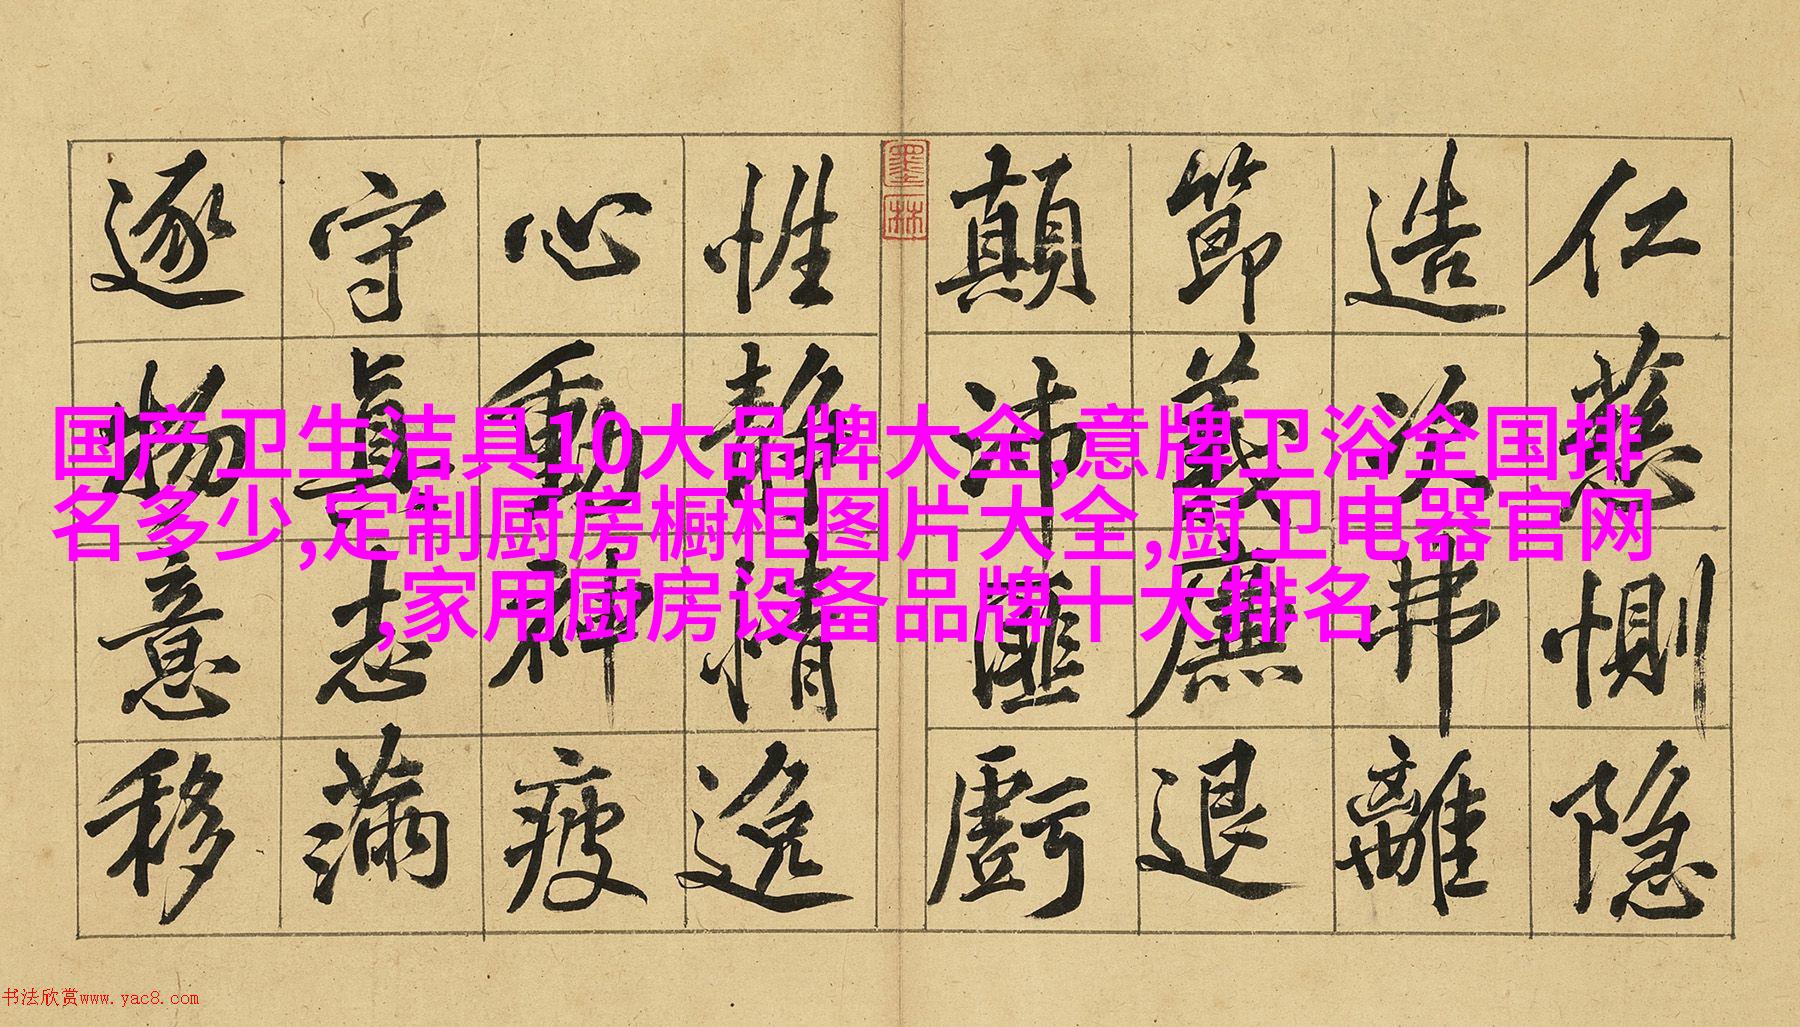 仁慈惻隐
造次弗離
節義廉退
顛沛匪虧
性静情逸
心動神疲
守真志满
逐物意移
墨林
国产卫生洁具10大品牌大全,意牌卫浴全国排
名多少,定制厨房橱柜图片大全,厨卫电器官网
,家用厨房设备品牌十大排名
书法欣赏www.yac8.com